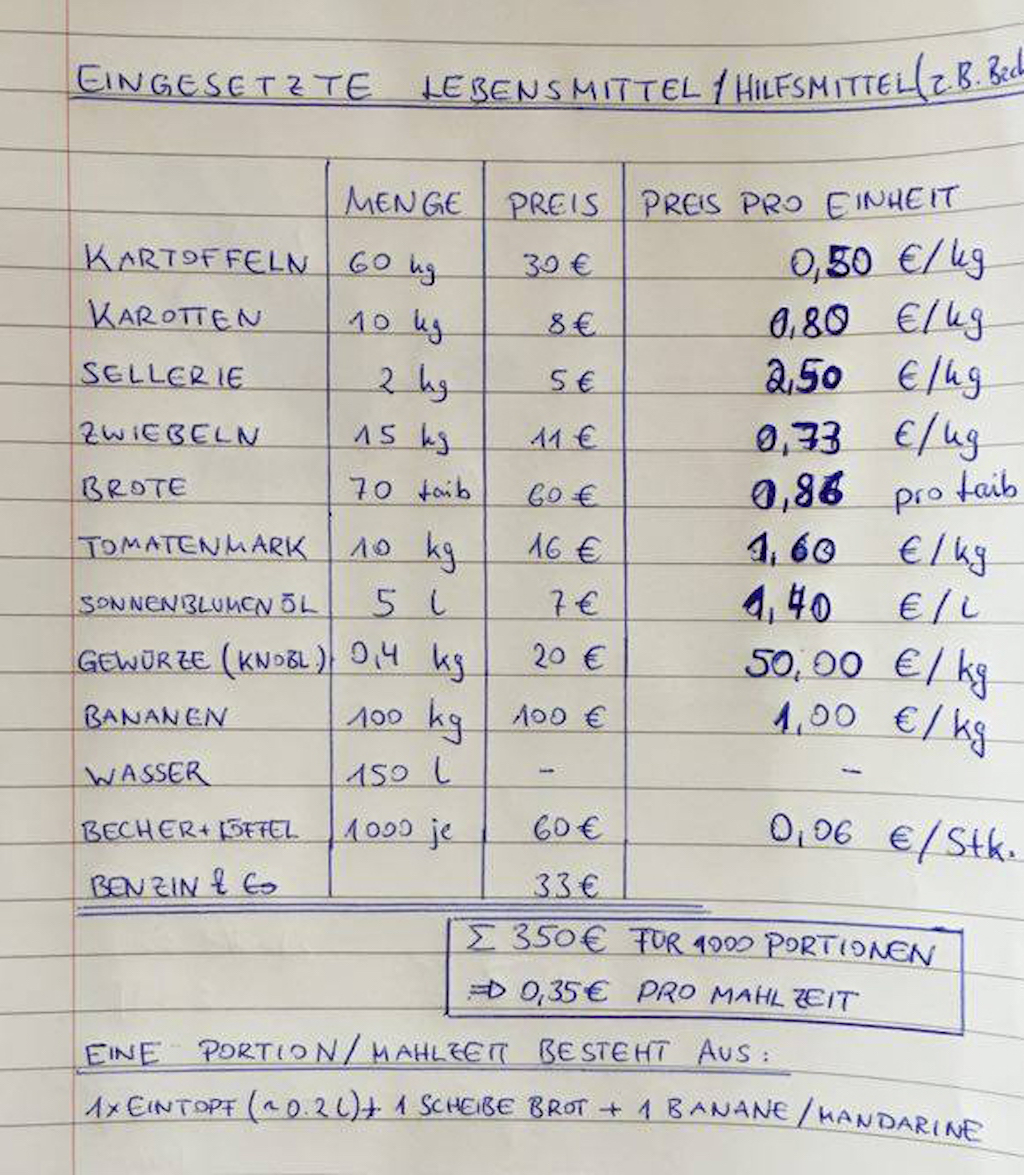 EINGESETZTE LEBENSMITTEL/HILFSMITTEL (z.B. Bech
MENGE PREIS PREIS PRO EINHEIT
KARTOFFELN 60 kg 30 € 0,50 €/kg
KAROTTEN 10 kg 8 € 0,80 €/kg
SELLERIE 2 kg 5 € 2,50 €/kg
ZWIEBELN 15 kg 11 € 0,73 €/kg
BROTE 70 Laib 60 € 0,86 pro Laib
TOMATENMARK 10 kg 16 € 1,60 €/kg
SONNENBLUMENÖL 5 l 7 € 1,40 €/L
GEWÜRZE (KNOBL) 0,4 kg 20 € 50,00 €/kg
BANANEN 100 kg 100 € 1,00 €/kg
WASSER 150 l - -
BECHER + LÖFFEL 1000 je 60 € 0,06 €/Stk.
BENZIN & Co 33 €
Σ 350 € FÜR 1000 PORTIONEN
⇒ 0,35 € PRO MAHLZEIT
EINE PORTION/MAHLZEIT BESTEHT AUS:
1x EINTOPF (~0.2 l) + 1 SCHEIBE BROT + 1 BANANE/MANDARINE